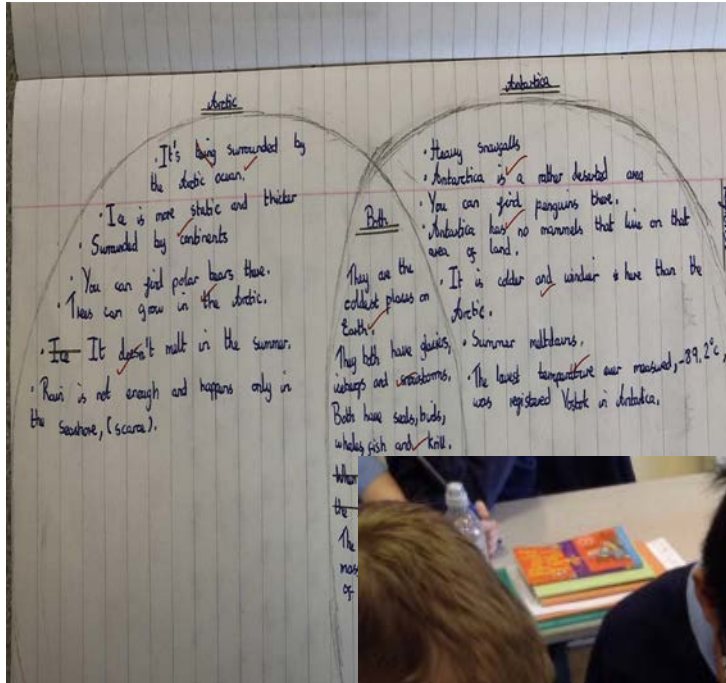 Arctic
· It's being surrounded by
the Arctic ocean.
· Ice is more static and thicker
· Surrounded by continents
· You can find polar bears there.
· Trees can grow in the Arctic.
· Ice It doesn't melt in the summer.
· Rain is not enough and happens only in
the seashore, (scarce).
Both
They are the
coldest places on
Earth.
They both have glaciers,
icebergs and snowstorms.
Both have seals, birds,
whales, fish and krill.
When
the
The
mas
of
Antartica
· Heavy snowfalls
· Antarctica is a rather deserted area
· You can find penguins there.
· Antartica has no mammals that live on that
area of land.
· It is colder and windier is here than the
Arctic.
· Summer meltdowns.
· The lowest temperature ever measured, -89.2°c,
was registered Vostok in Antartica.